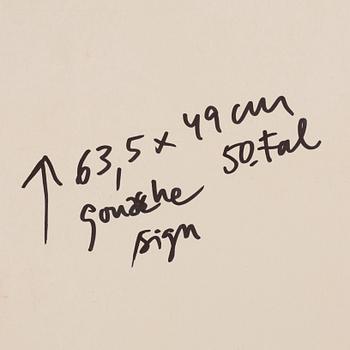 ↑ 63,5 x 49 cm
gouache 50.tal
sign